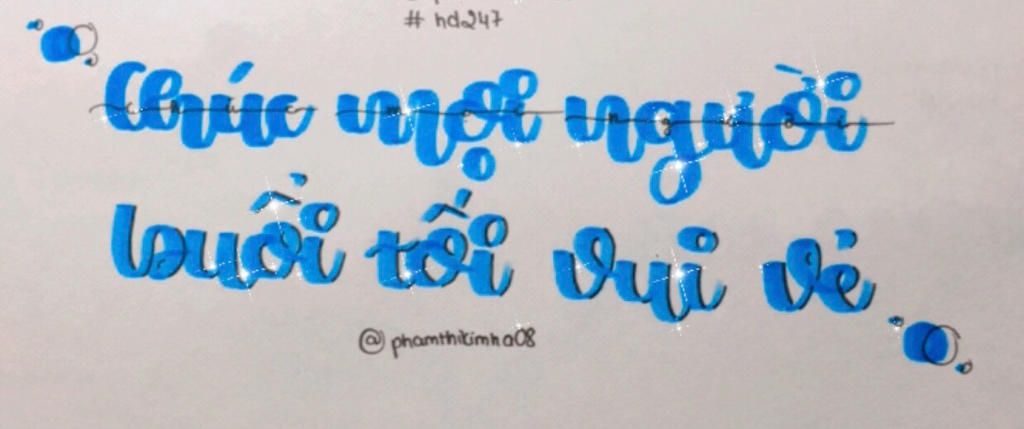 # hd247
Chúc mọi người
buổi tối vui vẻ
@phamthikimha08